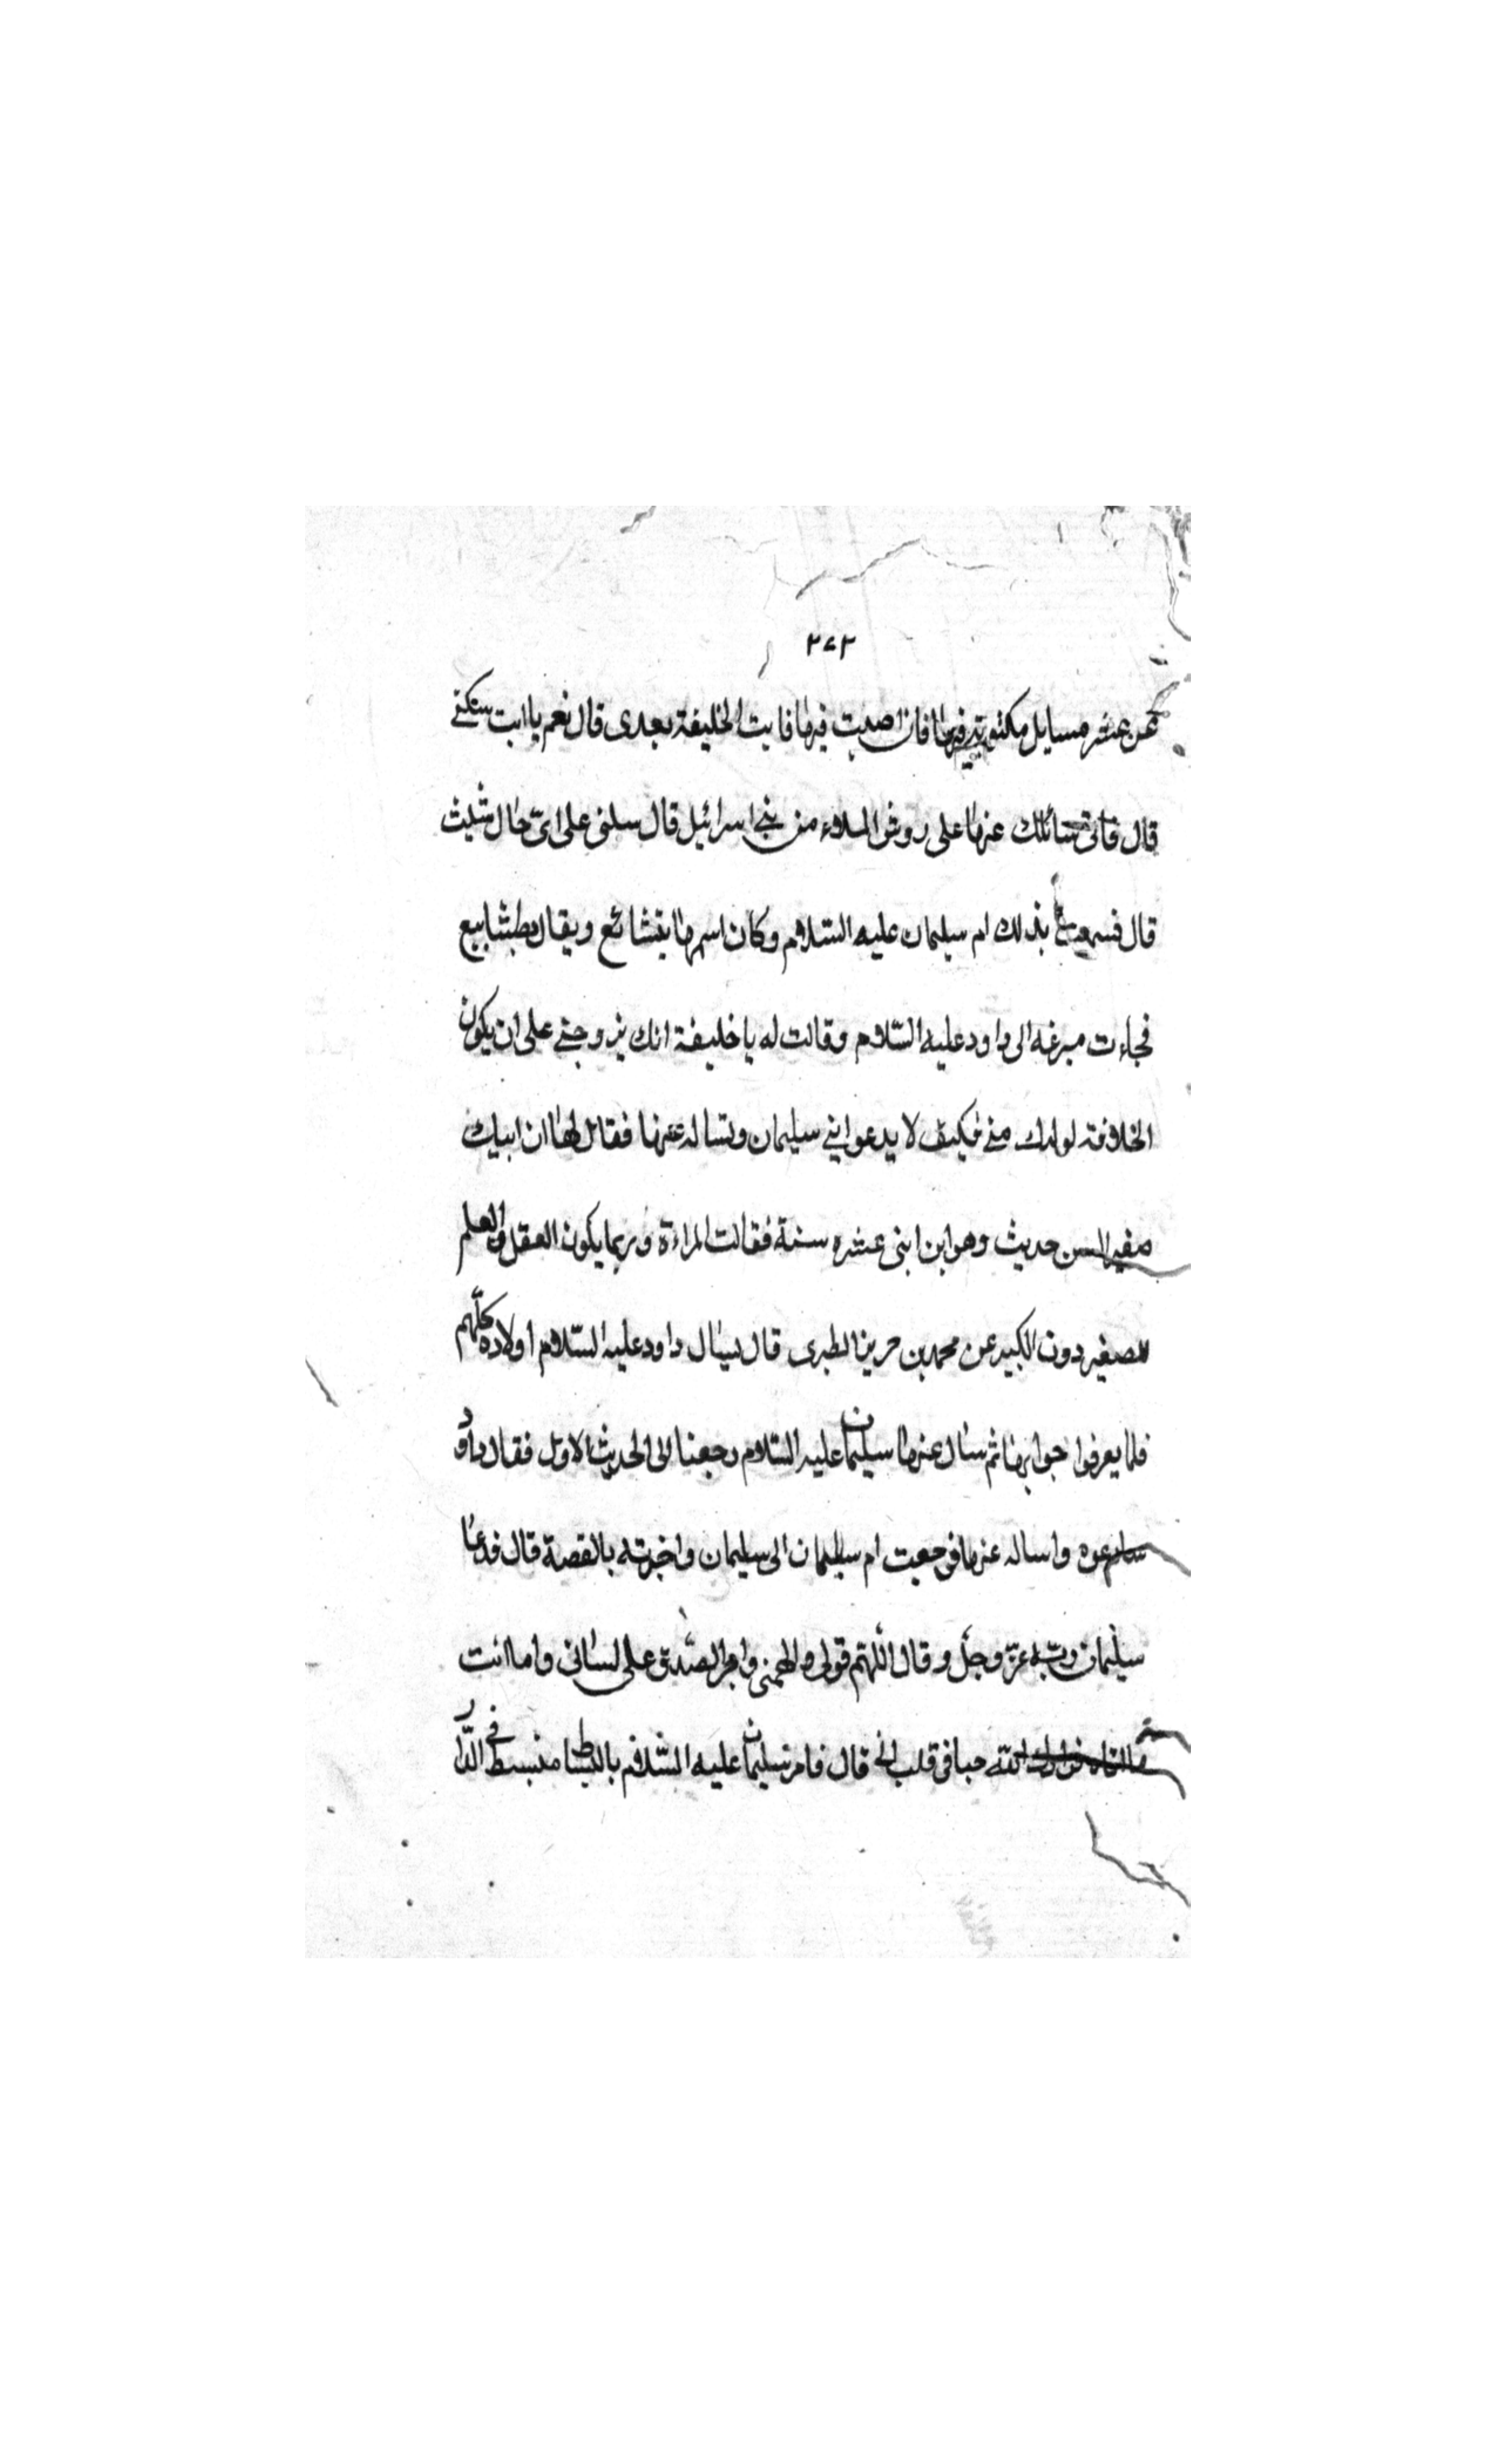 ٢٧٢
عن عشر مسايل مكتوبة فيها فان اصبت فيها فانت الخليفة بعدى قال نعم يا ابت
قال فانى سائلك عنها على روش الملاء من بنى اسرائيل قال سلنى على اىّ حال شئت
قال فسمعت بذلك ام سليمان عليه السّلام وكان اسمها ويقال بطشابيع
فجاءت الى داود عليه السّلام وقالت له يا خليفة انك على ان يكون
الخلافة لولدك منى فكيف لا يدعو ابنى سليمان وتساله عنها فقال لها ان ابنك
صغير السن حديث وهو ابن اثنى عشره سنة فقالت المراءة وربما يكون العقل والعلم
للصغير دون الكبير عن محمد بن جرير الطبرى قال داود عليه السّلام اولاده كلّهم
فلما يعرفوا جوابها ثم سئال عنها سليمان عليه السّلام رجعنا الى الحديث الاول فقال داود
واساله عنها فرجعت ام سليمان الى سليمان واخبرته بالقصة قال فدعا
سليمان ربّه عزّ وجلّ وقال اللّهمّ قولى والهمنى واجر الصّدق على لسانى واما انت
حبا فى قلب قال فامر سليمان عليه السّلام منبسط فى الدّار